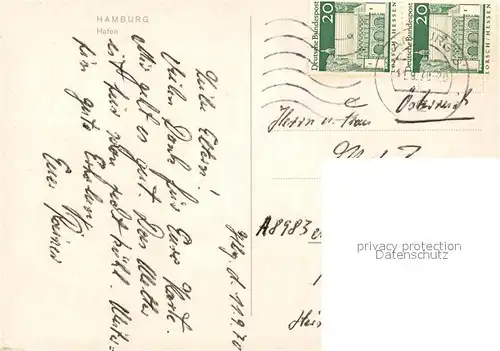 HAMBURG
Hafen
Hbg, d. 11.9.70
Liebe Eltern!
Vielen Dank für Eure Karte.
Mir geht es gut. Das Wetter
ist für schon recht kühl. Weiter-
hin gute Erholung
Euer Rainer
20
Deutsche Bundespost
LORSCH/HESSEN
20
Deutsche Bundespost
LORSCH/HESSEN
Österreich
Herrn u. Frau
A8983
privacy protection
copyright